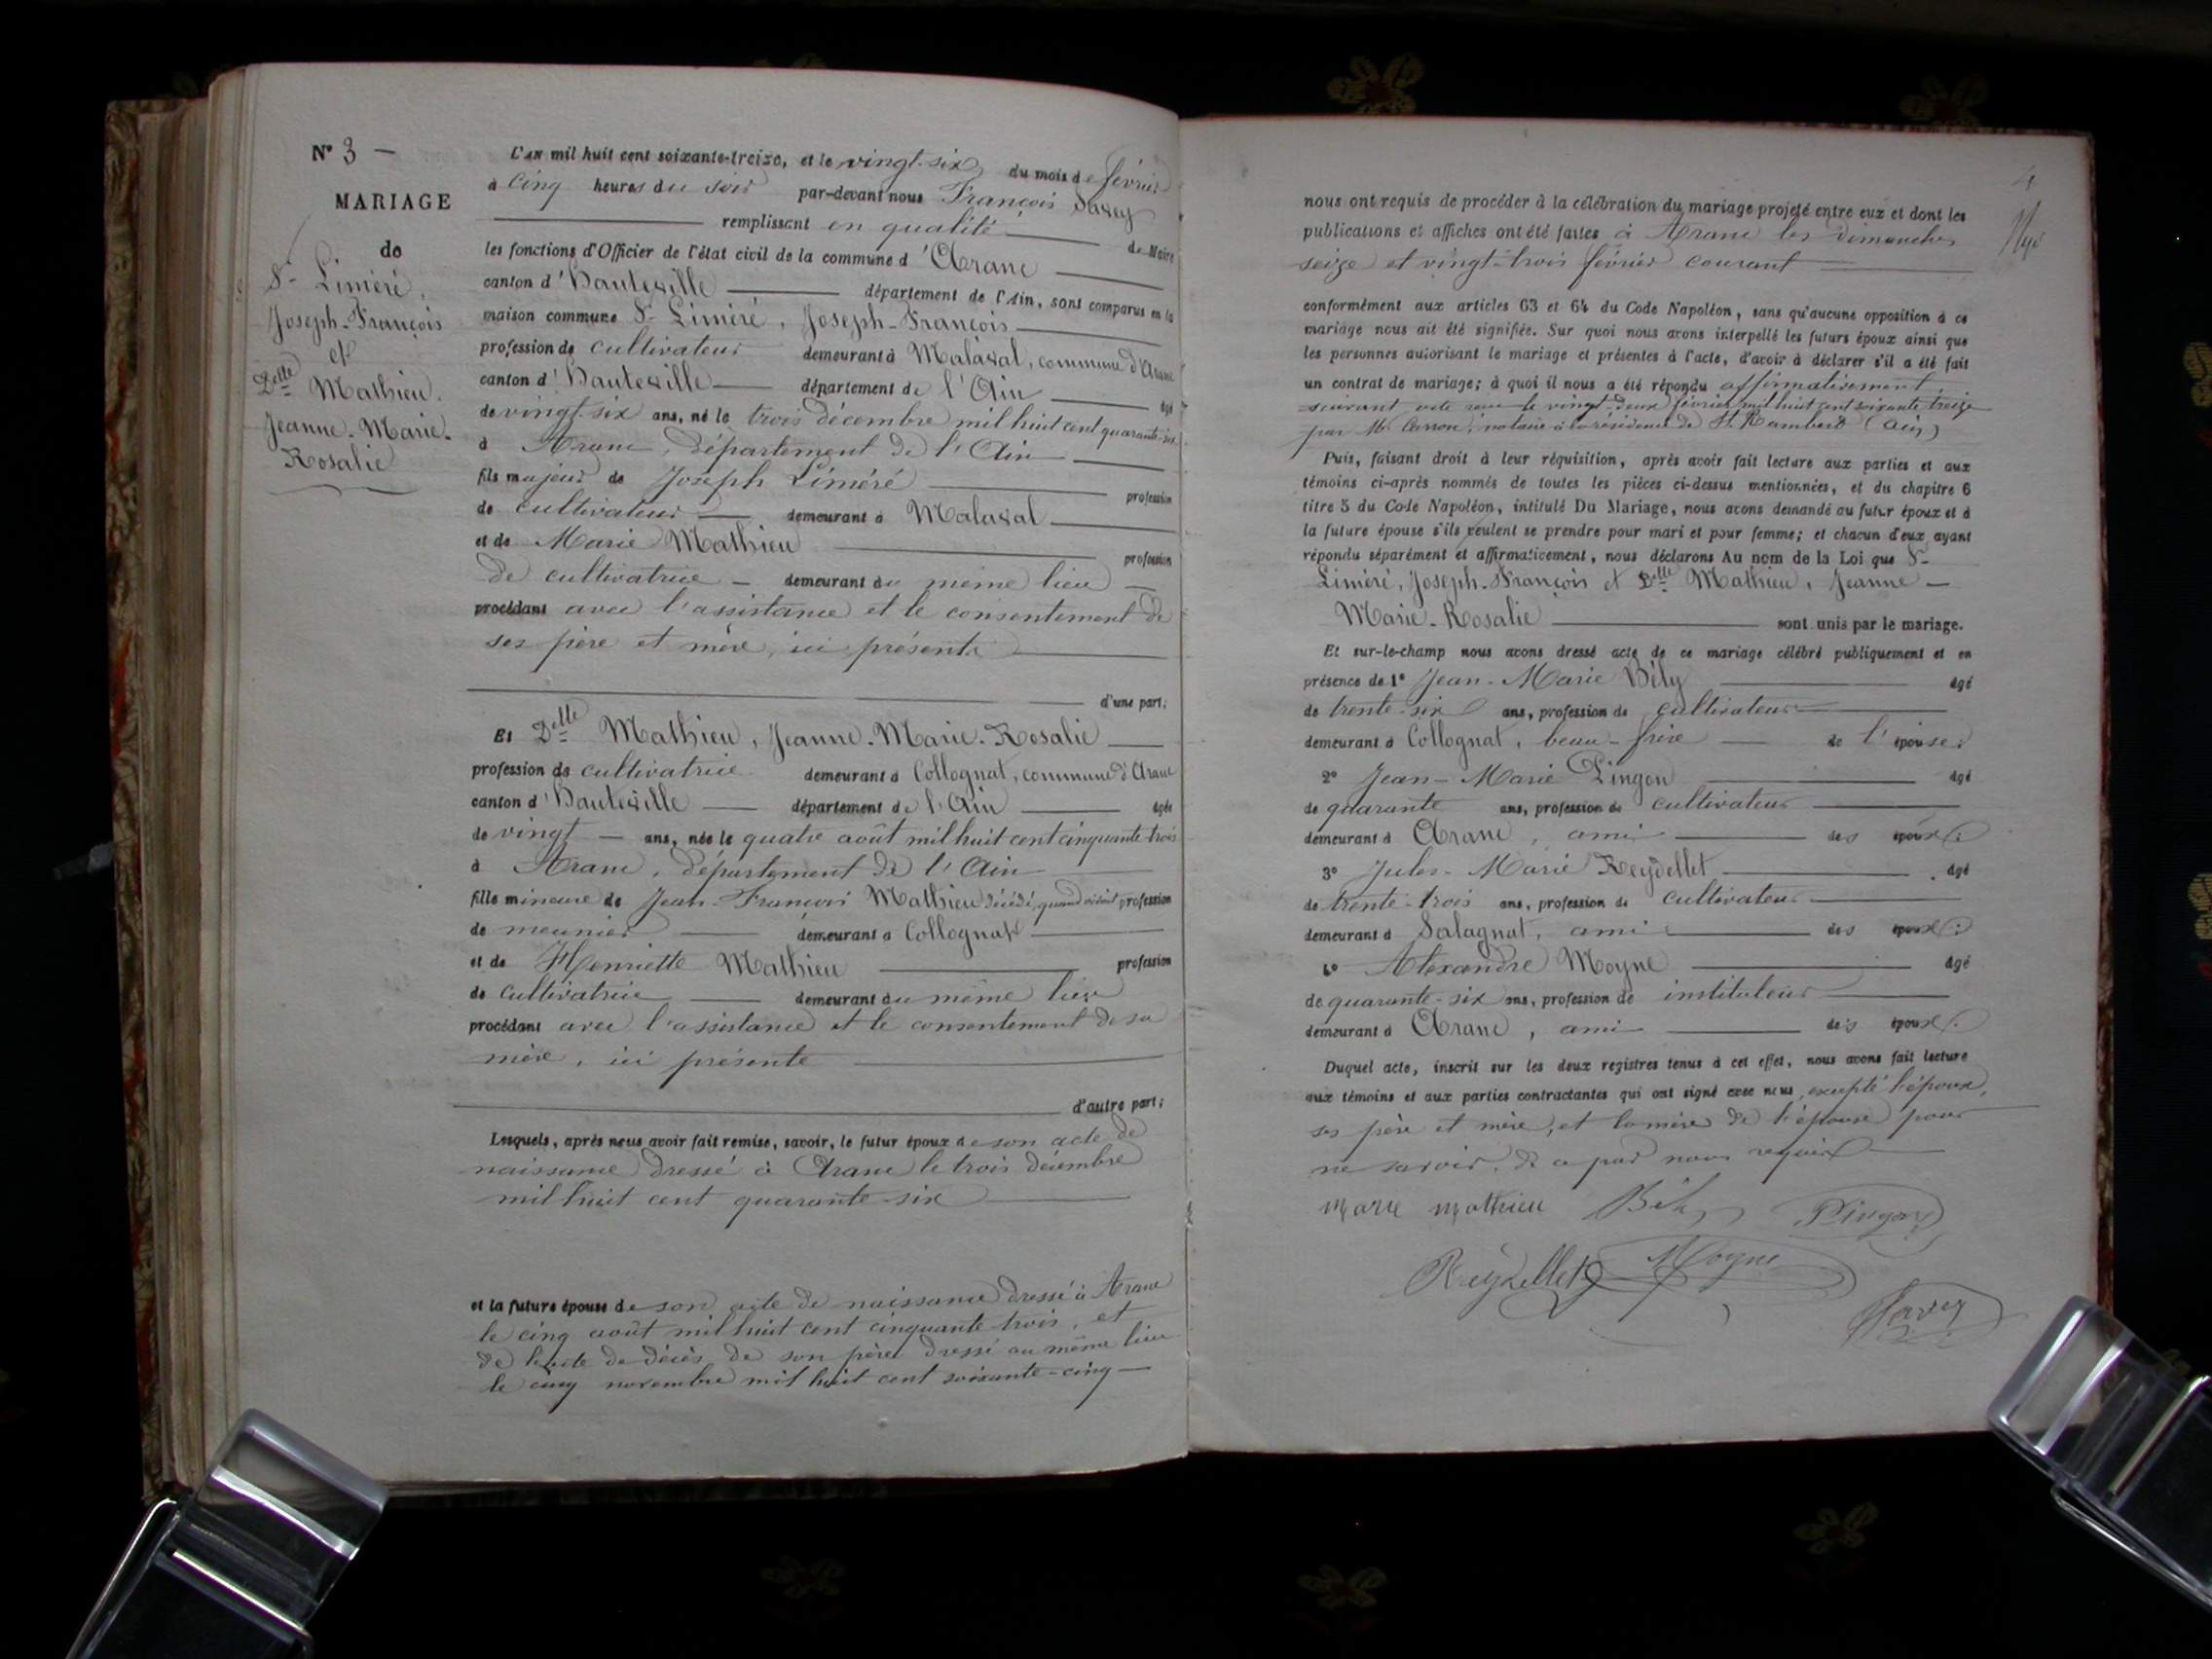 N° 3 —
MARIAGE
de
Sr Liméré,
Joseph-François
et
Delle Mathieu,
Jeanne-Marie-
Rosalie
L'AN mil huit cent soixante-treize, et le vingt-six du mois de février
à cinq heures du soir par-devant nous François Savey
remplissant en qualité de Maire
les fonctions d'Officier de l'état civil de la commune d'Aranc
canton d'Hauteville département de l'Ain, sont comparus en la
maison commune Sr Liméré, Joseph-François
profession de cultivateur demeurant à Malaval, commune d'Aranc
canton d'Hauteville département de l'Ain âgé
de vingt-six ans, né le trois décembre mil huit cent quarante-six
à Aranc, département de l'Ain
fils majeur de Joseph Liméré profession
de cultivateur demeurant à Malaval
et de Marie Mathieu profession
de cultivatrice demeurant au même lieu
procédant avec l'assistance et le consentement de
ses père et mère, ici présents
d'une part;
Et Delle Mathieu, Jeanne-Marie-Rosalie
profession de cultivatrice demeurant à Collognat, commune d'Aranc
canton d'Hauteville département de l'Ain âgée
de vingt ans, née le quatre août mil huit cent cinquante-trois
à Aranc, département de l'Ain
fille mineure de Jean-François Mathieu décédé, quand vivait profession
de meunier demeurant à Collognat
et de Henriette Mathieu profession
de cultivatrice demeurant au même lieu
procédant avec l'assistance et le consentement de sa
mère, ici présente
d'autre part;
Lesquels, après nous avoir fait remise, savoir, le futur époux de son acte de
naissance dressé à Aranc le trois décembre
mil huit cent quarante-six
et la future épouse de son acte de naissance dressé à Aranc
le cinq août mil huit cent cinquante-trois, et
de l'acte de décès de son père dressé au même lieu
le cinq novembre mil huit cent soixante-cinq —
4
nous ont requis de procéder à la célébration du mariage projeté entre eux et dont les
publications et affiches ont été faites à Aranc les dimanches
seize et vingt-trois février courant
conformément aux articles 63 et 64 du Code Napoléon, sans qu'aucune opposition à ce
mariage nous ait été signifiée. Sur quoi nous avons interpellé les futurs époux ainsi que
les personnes autorisant le mariage et présentes à l'acte, d'avoir à déclarer s'il a été fait
un contrat de mariage; à quoi il nous a été répondu affirmativement,
suivant acte reçu le vingt-deux février mil huit cent soixante-treize
par Me notaire à la résidence de St Rambert (Ain)
Puis, faisant droit à leur réquisition, après avoir fait lecture aux parties et aux
témoins ci-après nommés de toutes les pièces ci-dessus mentionnées, et du chapitre 6
titre 5 du Code Napoléon, intitulé Du Mariage, nous avons demandé au futur époux et à
la future épouse s'ils veulent se prendre pour mari et pour femme; et chacun d'eux ayant
répondu séparément et affirmativement, nous déclarons Au nom de la Loi que Sr
Liméré, Joseph-François et Delle Mathieu, Jeanne —
Marie-Rosalie sont unis par le mariage.
Et sur-le-champ nous avons dressé acte de ce mariage célébré publiquement et en
présence de 1° Jean-Marie Bély âgé
de trente-six ans, profession de cultivateur
demeurant à Collognat, beau-frère de l'épouse;
2° Jean-Marie Pingon âgé
de quarante ans, profession de cultivateur
demeurant à Aranc, ami des époux;
3° Jules-Marie Reydellet âgé
de trente-trois ans, profession de cultivateur
demeurant à Salagnat, ami des époux;
4° Alexandre Moyne âgé
de quarante-six ans, profession de instituteur
demeurant à Aranc, ami des époux.
Duquel acte, inscrit sur les deux registres tenus à cet effet, nous avons fait lecture
aux témoins et aux parties contractantes qui ont signé avec nous, excepté l'époux,
ses père et mère, et la mère de l'épouse pour
ne savoir, de ce par nous requis
Marie Mathieu Bély Pingon
Reydellet Moyne
Savey